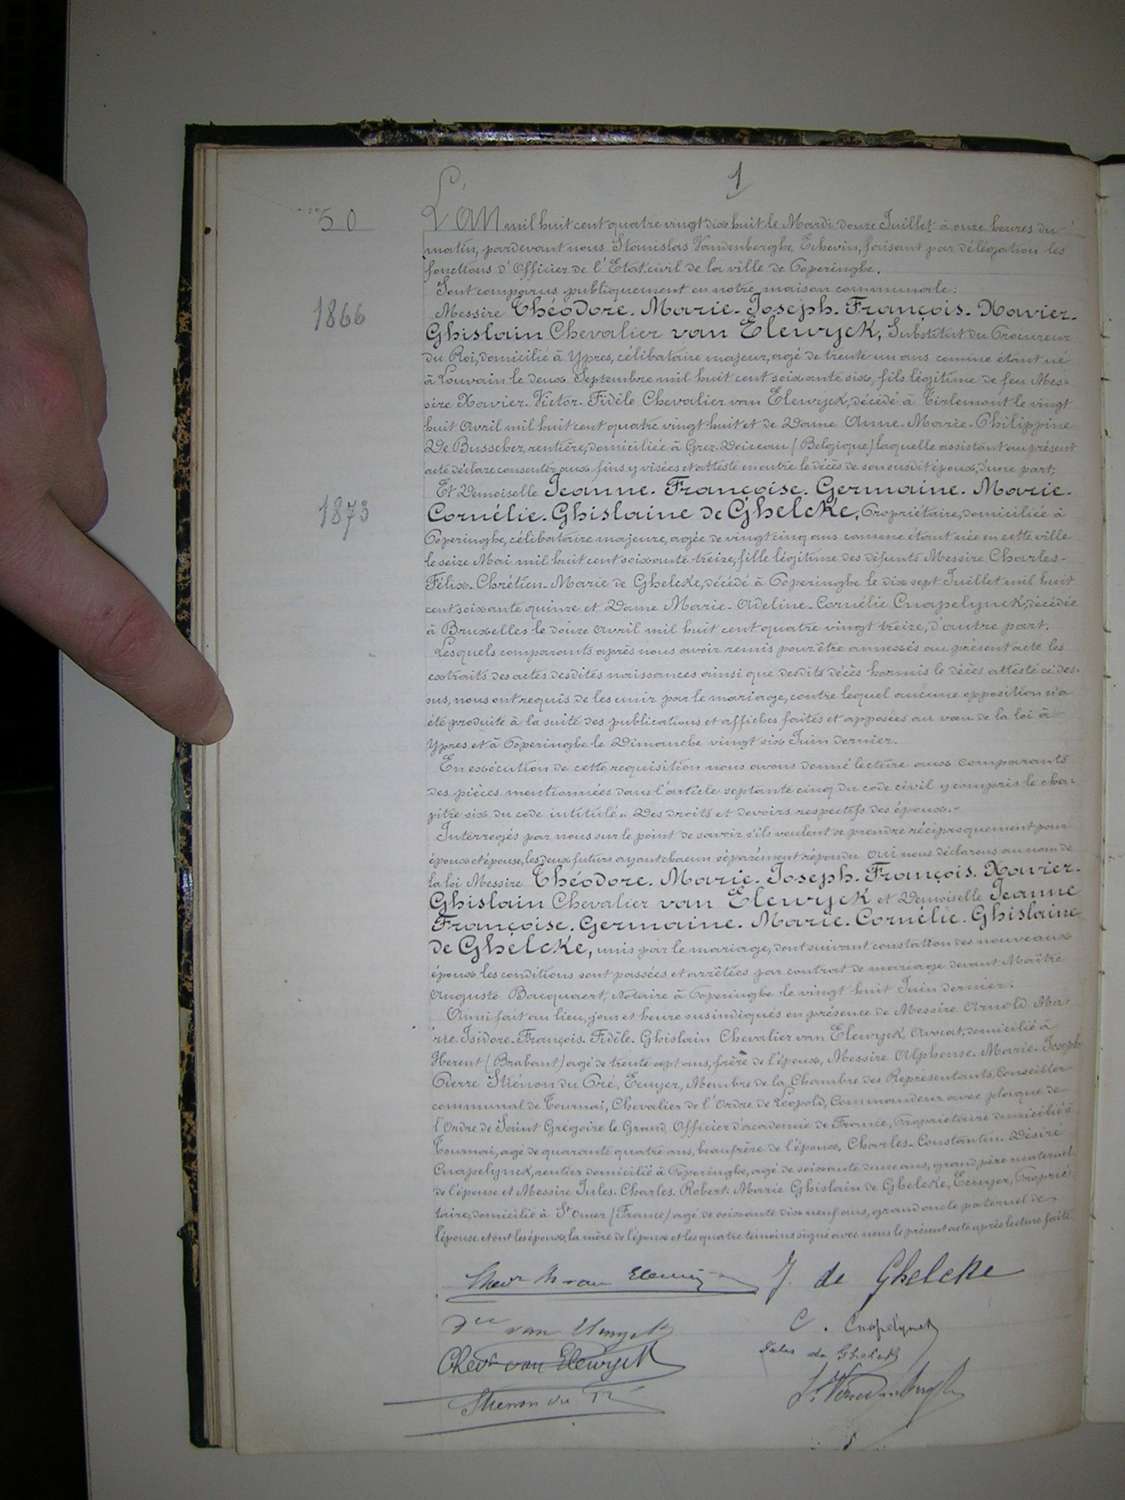 1
50
L'an mil huit cent quatre vingt dix huit le Mardi douze Juillet à onze heures du
matin, pardevant nous Stanislas Vandenberghe Echevin, faisant par délégation les
fonctions d'Officier de l'Etat civil de la ville de Poperinghe.
Sont comparus publiquement en notre maison communale:
1866
Messire Théodore. Marie. Joseph. François. Xavier.
Ghislain Chevalier van Elewyck, Substitut du Procureur
du Roi, domicilié à Ypres, célibataire majeur, agé de trente un ans comme étant né
à Louvain le deux Septembre mil huit cent soixante six, fils légitime de feu Mes-
sire Xavier. Victor. Fidèle Chevalier van Elewyck, décédé à Tirlemont le vingt
huit Avril mil huit cent quatre vingt huit et de Dame Anne. Marie. Philippine
De Busscher, rentière, domiciliée à Grez-Doiceau (Belgique) laquelle assistant au présent
acte déclare consentir aux fins y visées et atteste en outre le décès de son susdit époux, d'une part;
1873
Et Demoiselle Jeanne. Françoise. Germaine. Marie.
Cornélie. Ghislaine de Ghelcke, Propriétaire, domiciliée à
Poperinghe, célibataire majeure, agée de vingt cinq ans comme étant née en cette ville
le seize Mai mil huit cent soixante-treize, fille légitime des défunts Messire Charles-
Félix. Chrétien. Marie de Ghelcke, décédé à Poperinghe le dix sept Juillet mil huit
cent soixante quinze et Dame Marie. Adeline. Cornélie Cnapelynck, décédée
à Bruxelles le douze Avril mil huit cent quatre vingt treize, d'autre part.
Lesquels comparants après nous avoir remis pour être annexés au présent acte les
extraits des actes desdites naissances ainsi que desdits décès hormis le décès attesté ci des-
sus, nous ont requis de les unir par le mariage, contre lequel aucune opposition n'a
été produite à la suite des publications et affiches faites et apposées au vœu de la loi à
Ypres et à Poperinghe le Dimanche vingt six Juin dernier.
En exécution de cette requisition nous avons donné lecture aux comparants
des pièces mentionnées dans l'article septante cinq du code civil y compris le cha-
pitre six du code intitulé « Des droits et devoirs respectifs des époux. »
Interrogés par nous sur le point de savoir s'ils veulent se prendre réciproquement pour
époux et épouse, les deux futurs ayant chacun séparément répondu oui nous déclarons au nom de
la loi Messire Théodore. Marie. Joseph. François. Xavier.
Ghislain Chevalier van Elewyck et Demoiselle Jeanne
Françoise. Germaine. Marie. Cornélie. Ghislaine
de Ghelcke, unis par le mariage, dont suivant constation des nouveaux
époux les conditions sont passées et arrêtées par contrat de mariage devant Maître
Auguste Bacquaert, Notaire à Poperinghe le vingt huit Juin dernier.
Ainsi fait au lieu, jour et heure susindiqués en présence de Messire Arnold. Ma-
rie. Isidore. François. Fidèle. Ghislain Chevalier van Elewyck Avocat, domicilié à
Herent (Brabant) agé de trente sept ans, frère de l'époux, Messire Alphonse. Marie. Joseph
Pierre Stiénon du Pré, Ecuyer, Membre de la Chambre des Représentants, Conseiller
communal de Tournai, Chevalier de l'Ordre de Léopold, Commandeur avec plaque de
l'Ordre de Saint Grégoire le Grand, Officier d'academie de France, Propriétaire domicilié à
Tournai, agé de quarante quatre ans, beaufrère de l'épouse, Charles. Constantin. Désiré
Cnapelynck, rentier domicilié à Poperinghe, agé de soixante douze ans, grand père maternel
de l'épouse et Messire Jules. Charles. Robert. Marie Ghislain de Ghelcke, Ecuyer, Proprié-
taire, domicilié à St Omer (France) agé de soixante dix neuf ans, grand oncle paternel de
l'épouse et ont les époux, la mère de l'époux et les quatre témoins signé avec nous le présent acte après lecture faite
Chevr Th van Elewyck J. de Ghelcke
van Elewyck C. Cnapelynck
Chevr van Elewyck Jules de Ghelcke
Stiénon du Pré St Vandenberghe